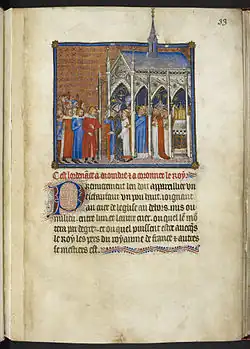 33
C est lordenance a enoindre & a coronner le roy
Premierement len doit appareillier vn
eschafaut vn pou haut ioignant
au cuer de leglise au dehors mis ou
milieu entre lun et lautre cuer. ou quel le mon
tera par degrez. et ou quel puissent estre auecques
le roy les pers du royaume de france & autres
se mestiers est.